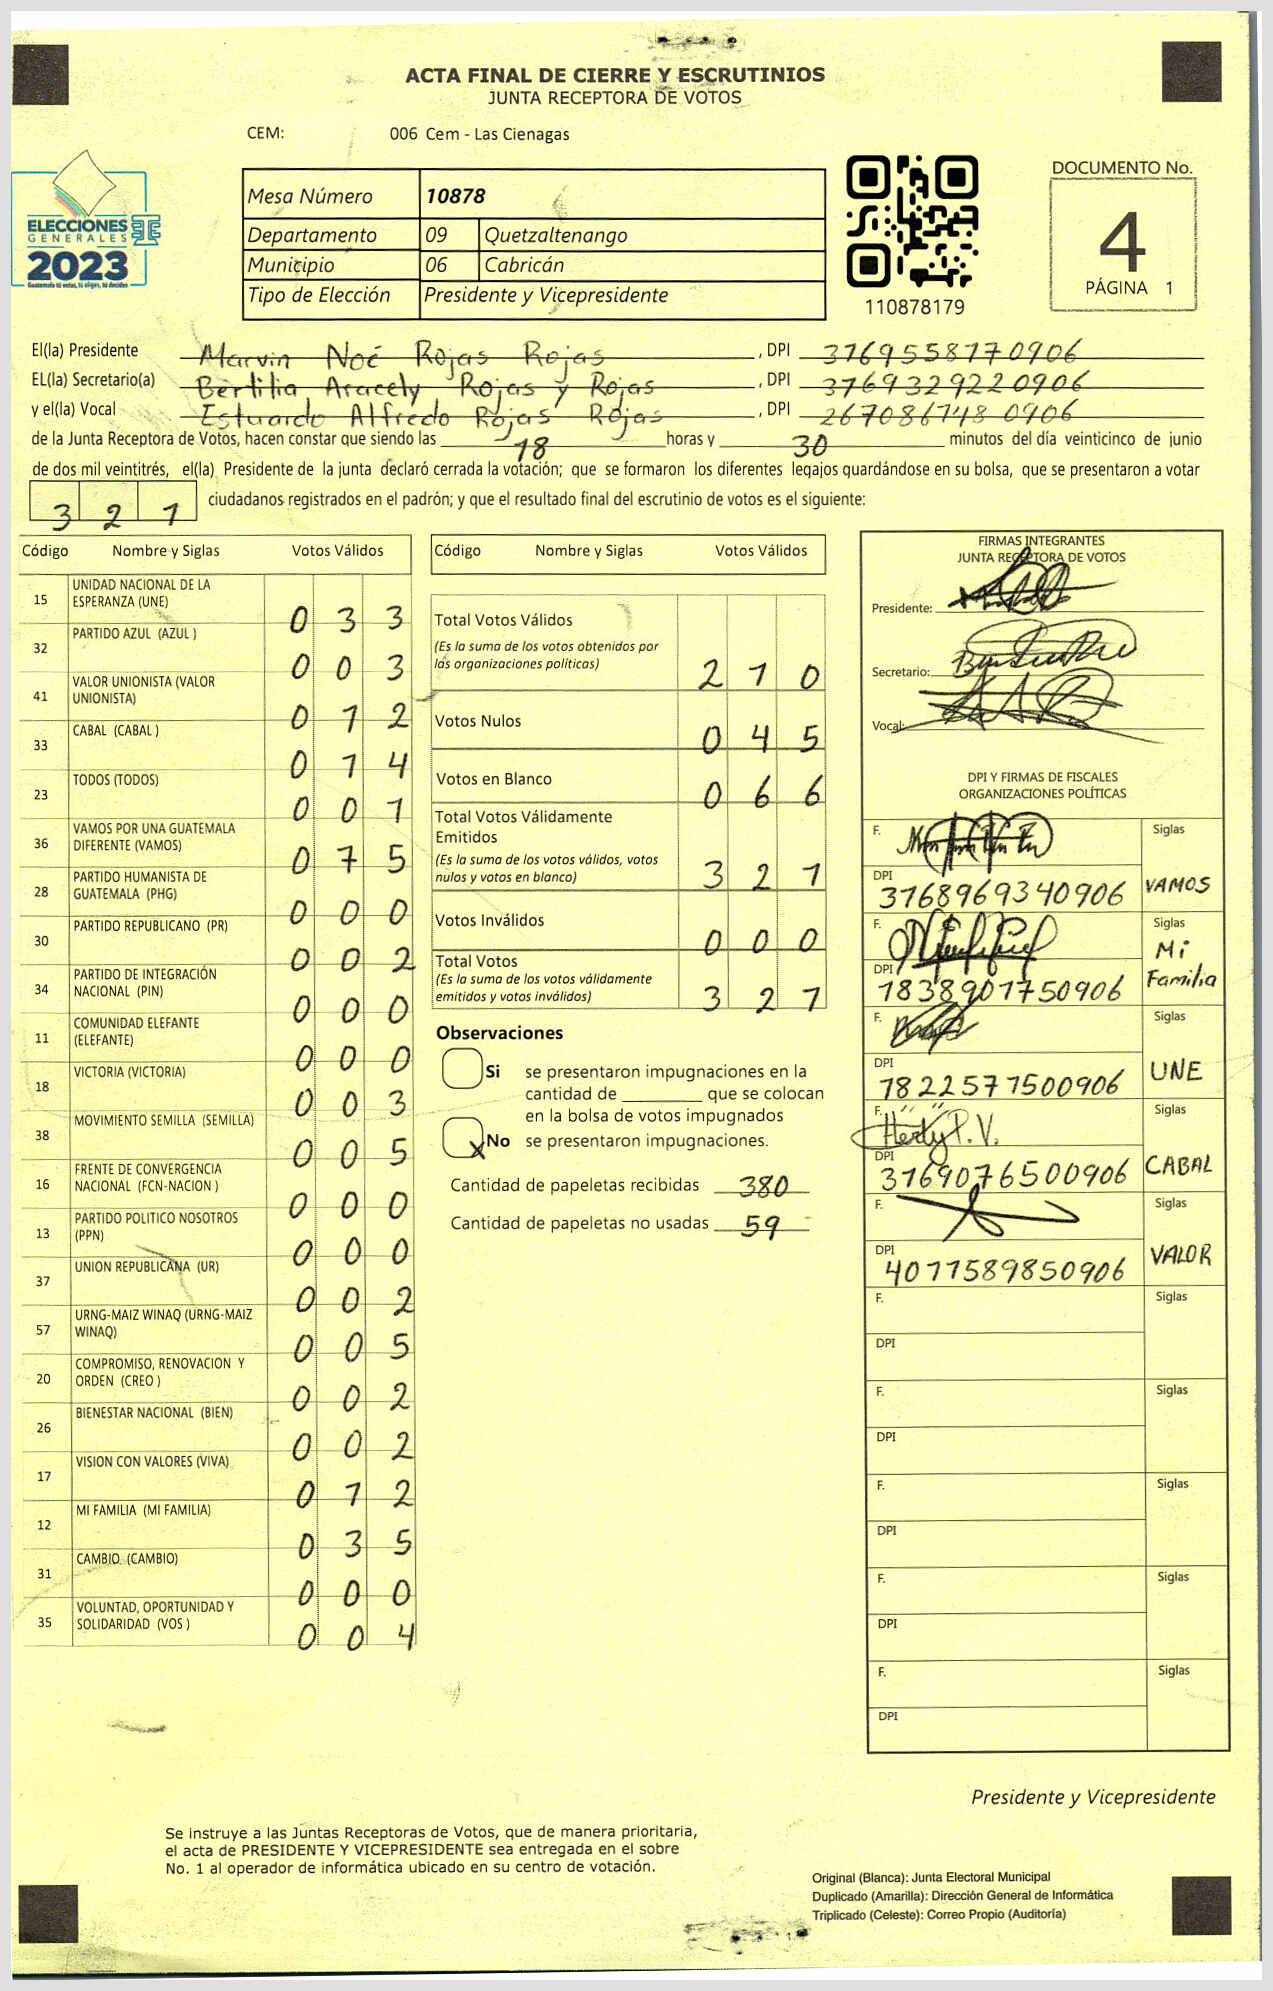 ACTA FINAL DE CIERRE Y ESCRUTINIOS
JUNTA RECEPTORA DE VOTOS
CEM: 006 Cem - Las Cienagas
ELECCIONES
GENERALES
2023
Guatemala tú votas, tú eliges, tú decides
Mesa Número 10878
Departamento 09 Quetzaltenango
Municipio 06 Cabricán
Tipo de Elección Presidente y Vicepresidente
110878179
DOCUMENTO No.
4
PÁGINA 1
El(la) Presidente Marvin Noé Rojas Rojas, DPI 3769558170906
EL(la) Secretario(a) Bertilia Aracely Rojas y Rojas, DPI 3769329220906
y el(la) Vocal Estuardo Alfredo Rojas Rojas, DPI 267086748 0906
de la Junta Receptora de Votos, hacen constar que siendo las 18 horas y 30 minutos del día veinticinco de junio
de dos mil veintitrés, el(la) Presidente de la junta declaró cerrada la votación; que se formaron los diferentes legajos quardándose en su bolsa, que se presentaron a votar
321 ciudadanos registrados en el padrón; y que el resultado final del escrutinio de votos es el siguiente:
Código Nombre y Siglas Votos Válidos
15 UNIDAD NACIONAL DE LA
ESPERANZA (UNE) 033
32 PARTIDO AZUL (AZUL ) 003
41 VALOR UNIONISTA (VALOR
UNIONISTA) 012
33 CABAL (CABAL ) 014
23 TODOS (TODOS) 001
36 VAMOS POR UNA GUATEMALA
DIFERENTE (VAMOS) 075
28 PARTIDO HUMANISTA DE
GUATEMALA (PHG) 000
30 PARTIDO REPUBLICANO (PR) 002
34 PARTIDO DE INTEGRACIÓN
NACIONAL (PIN) 000
11 COMUNIDAD ELEFANTE
(ELEFANTE) 000
18 VICTORIA (VICTORIA) 003
38 MOVIMIENTO SEMILLA (SEMILLA) 005
16 FRENTE DE CONVERGENCIA
NACIONAL (FCN-NACION ) 000
13 PARTIDO POLITICO NOSOTROS
(PPN) 000
37 UNION REPUBLICANA (UR) 002
57 URNG-MAIZ WINAQ (URNG-MAIZ
WINAQ) 005
20 COMPROMISO, RENOVACION Y
ORDEN (CREO ) 002
26 BIENESTAR NACIONAL (BIEN) 002
17 VISION CON VALORES (VIVA) 012
12 MI FAMILIA (MI FAMILIA) 035
31 CAMBIO (CAMBIO) 000
35 VOLUNTAD, OPORTUNIDAD Y
SOLIDARIDAD (VOS ) 004
Código Nombre y Siglas Votos Válidos
Total Votos Válidos
(Es la suma de los votos obtenidos por
las organizaciones políticas) 210
Votos Nulos 045
Votos en Blanco 066
Total Votos Válidamente
Emitidos
(Es la suma de los votos válidos, votos
nulos y votos en blanco) 321
Votos Inválidos 000
Total Votos
(Es la suma de los votos válidamente
emitidos y votos inválidos) 321
Observaciones
Si se presentaron impugnaciones en la
cantidad de ________ que se colocan
en la bolsa de votos impugnados
X No se presentaron impugnaciones.
Cantidad de papeletas recibidas 380
Cantidad de papeletas no usadas 59
FIRMAS INTEGRANTES
JUNTA RECEPTORA DE VOTOS
Presidente:
Secretario:
Vocal:
DPI Y FIRMAS DE FISCALES
ORGANIZACIONES POLÍTICAS
F. Siglas
DPI 3768969340906 VAMOS
F. Siglas
DPI 1838901750906 Mi Familia
F. Siglas
DPI 1822571500906 UNE
F. Herly P. V. Siglas
DPI 3769076500906 CABAL
F. Siglas
DPI 4011589850906 VALOR
F. Siglas
DPI
F. Siglas
DPI
F. Siglas
DPI
F. Siglas
DPI
F. Siglas
DPI
Presidente y Vicepresidente
Se instruye a las Juntas Receptoras de Votos, que de manera prioritaria,
el acta de PRESIDENTE Y VICEPRESIDENTE sea entregada en el sobre
No. 1 al operador de informática ubicado en su centro de votación.
Original (Blanca): Junta Electoral Municipal
Duplicado (Amarilla): Dirección General de Informática
Triplicado (Celeste): Correo Propio (Auditoría)